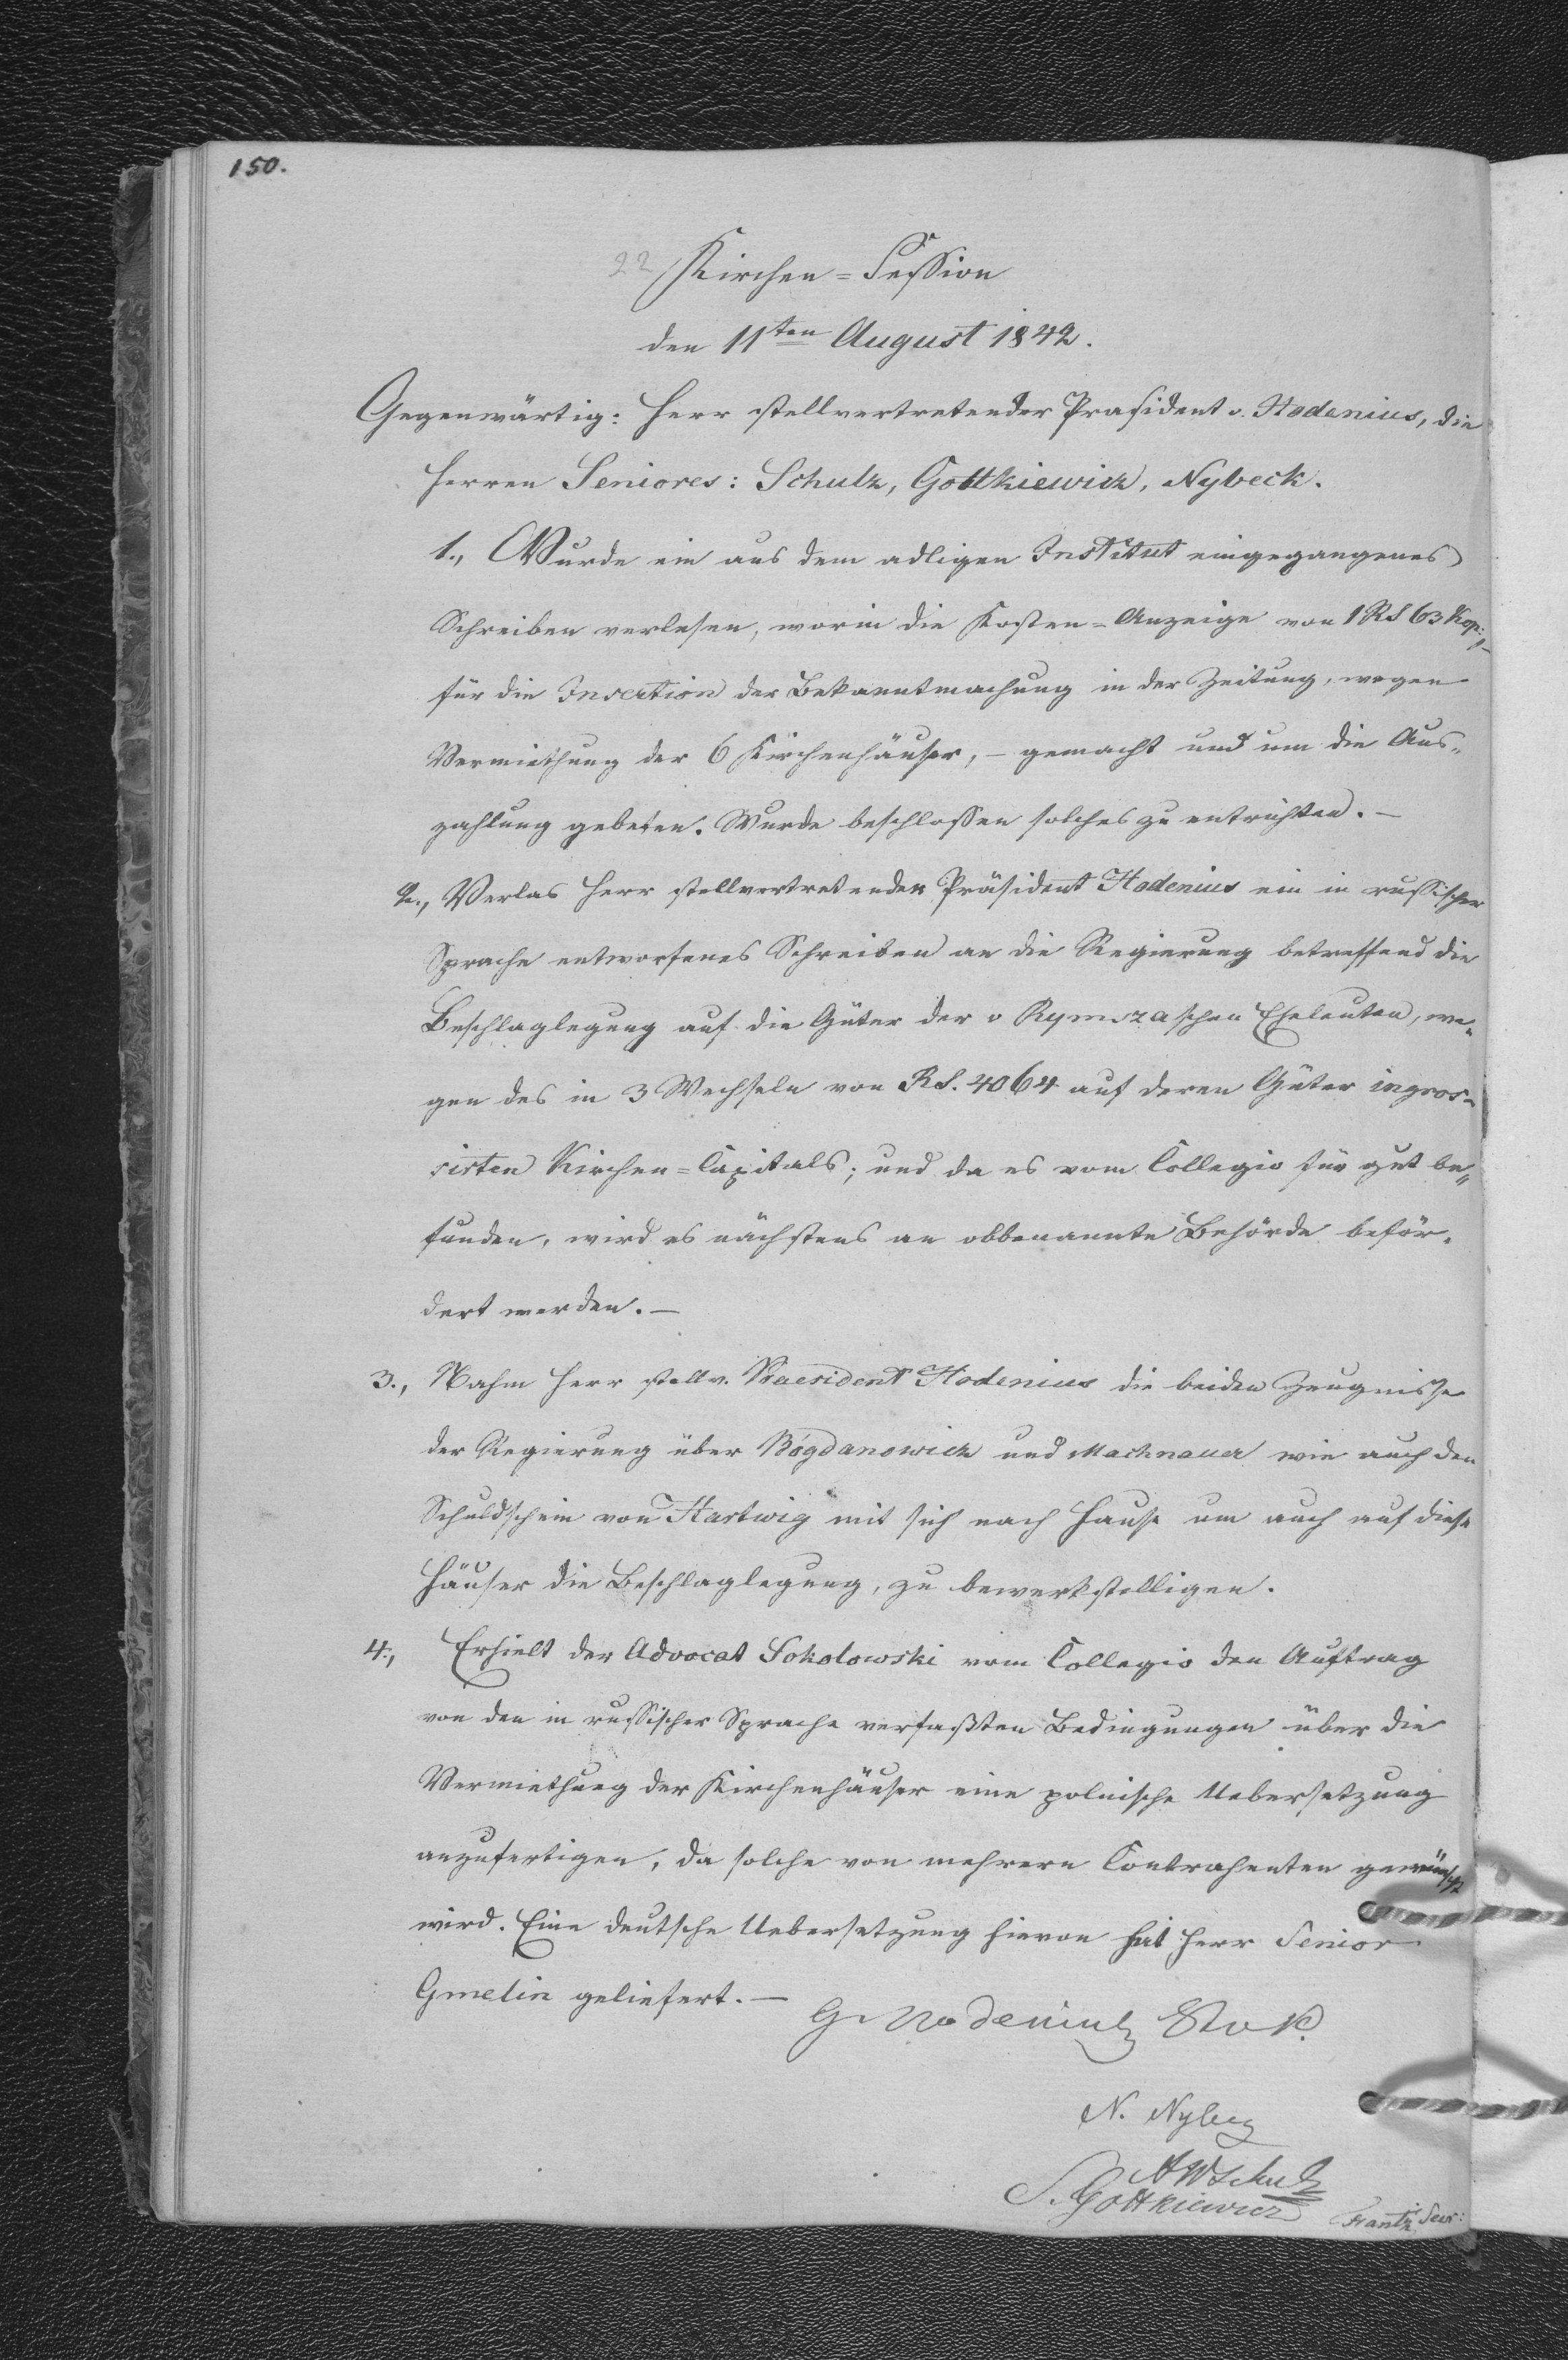 150.
22 Kirchen=Session
den 11ten August 1842.
Gegenwärtig: Herr stellvertretender Prasident v. Hodenius, die
Herren Seniores: Schulz, Gottkiewicz, Nybeck.
1., Wurde ein aus dem adligen Institut eingegangenes
Schreiben verlesen, worin die Kosten=Anzeige von 1 RS 63 Kop:
für die Insertion der Bekanntmachung in der Zeitung, wegen
Vermiethung der 6 Kirchenhäuser, – gemacht und um die Aus-
zahlung gebeten. Wurde beschlossen solches zu entrichten. –
2., Verlas Herr stellvertretender Präsident Hodenius ein in russischer
Sprache entworfenes Schreiben an die Regierung betreffend die
Beschlaglegung auf die Güter der v Rymszaschen Eheleuten, we-
gen des in 3 Wechseln von RS. 4064 auf deren Güter ingros-
sirten Kirchen=Capitals; und da es vom Collegio für gut be-
funden, wird es nächstens an obbenannte Behörde beför-
dert werden. –
3., Nahm Herr stellv. Praesident Hodenius die beiden Zeugnisse
der Regierung über Bogdanowicz und Machnauer wie auch den
Schuldschein von Hartwig mit sich nach Hause um auch auf diese
Häuser die Beschlaglegung, zu bewerkstelligen.
4., Erhielt der Advocat Sokolowski vom Collegio den Auftrag
von den in russischer Sprache verfaßten Bedingungen über die
Vermiethung der Kirchenhäuser eine polnische Uebersetzung
anzufertigen, da solche von mehrern Contrahenten gewünscht
wird. Eine deutsche Uebersetzung hievon hat Herr Senior
Gmelin geliefert. –
G. Hodenius
N. Nybeck
AW Schulz
S. Gottkiewicz
Frantz Secr: